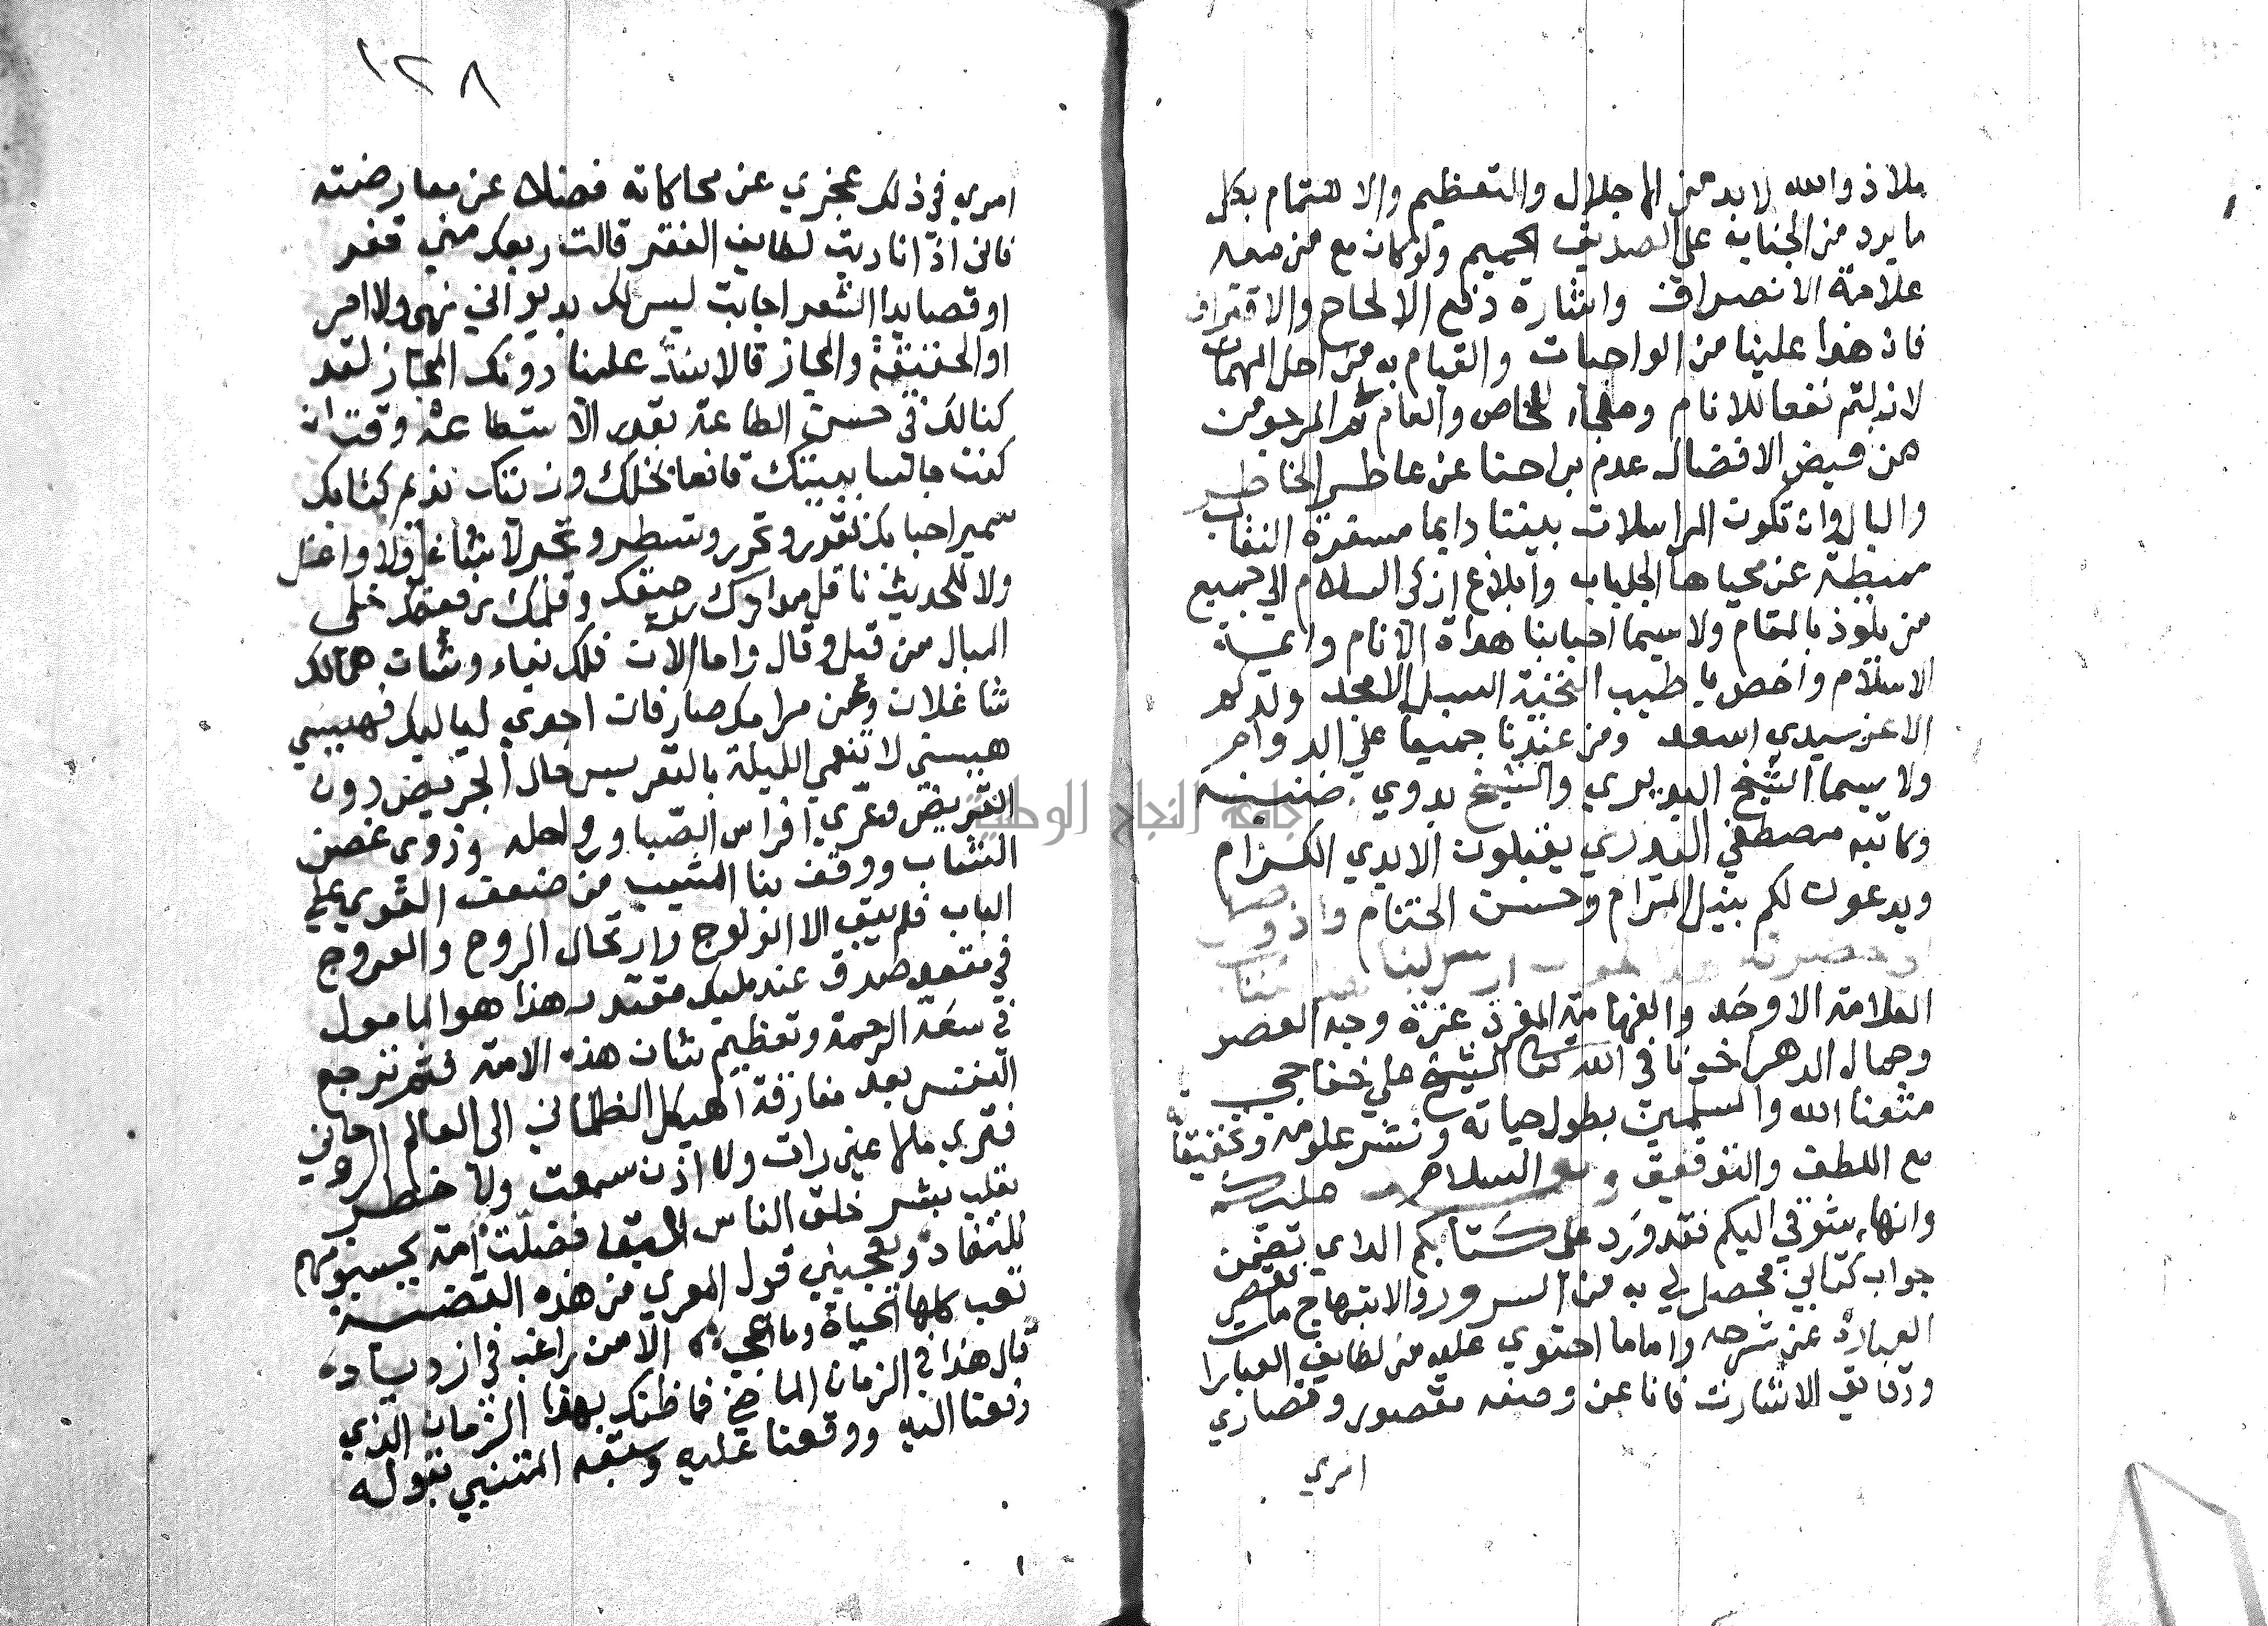 ملاذ والله لا بد من الاجلال والتعظيم والاهتمام بكل
ما يرد من الجناب على الصديق الحميم ولو كان مع من معه
علامة الانصراف واشارة دفع الالحاح والاقتراف
فان هذا علينا من الواجبات والقيام به من اجل المهمات
لا زلتم نفعا للانام وملجاء للخاص والعام ثم المرجو من
من فيض الافضال عدم براحنا عن عاطر الخاطر
والبال وان تكون المراسلات بيننا دايما مسفرة النقاب
مميطة عن محياها الجلباب وابلاغ ازكى السلام الي جميع
من يلوذ بالمقام ولا سيما احبابنا هداة الانام وايمة
الاسلام واخص باطيب التحية السبل الامجد ولدكم
الاعز سيدي اسعد ومن عندنا جميعا علي الدوام
ولا سيما الشيخ البديري والشيخ بدوي
وكاتبه مصطفي البدري يقبلون الايدي الكرام
ويدعون لكم بنيل المرام وحسن الختام
العلامة الاوحد والفهامة المفرد غرة وجه العصر
وجمال الدهر اخونا في الله تعالى الشيخ علي خفاجي
متعنا الله والمسلمين بطول حياته ونشر علومه وتحقيقا
مع اللطف والتوفيق وبعد السلام عليكم
وانهاء شوقي اليكم فقد ورد على كتابكم الذي تضمن
جواب كتابي فحصل لي به من السرور والابتهاج ما تقصر
العبارة عن شرحه واما ما احتوي عليه من لطايف العبارا
ودقايق الاشارت فانا عن وصفه مقصور وقصاري
امري
١٢٨
امري في ذلك عجزي عن محاكاته فضلا عن معارضته
فاني اذا ناديت لطايف الفقر قالت ربعك مني قفر
او قصايد الشعر اجابت ليس لك يديو اني نهي ولا امر
او الحقيقة والمجاز قالا سد علينا دونك المجاز لقد
كنا لك في حسن الطاعة بقدر الاستطاعة وقت ان
كنت جالسا ببيتك قانعا بخلك وزيتك نديم كتابك
سمير احبابك تقرر وتحرر وتسطر وتحبر لا شاغل ولا واغل
ولا للحديث ناقل مدادك وقلمك رفيقك خلي
البال من قيل وقال واما الان فلك نباء وشان همالك
شاغلان وعن مرامك صارفان احدي لياليك فهيسي
هيسي لا تنعمي الليلة بالتعريس حال الجريض دون
القريض وعري افراس الصبا ورواحله وذوي غصن
الشباب ووقف بنا المشيب من ضعف القوي علي
الباب فلم يبق الا الولوج وارتحال الروح والعروج
في مقعد صدق عند مليك مقتدر هذا هو المامول
في سعة الرحمة وتعظيم شان هذه الامة فثم ترجع
النفس بعد مفارقة الهيكل الظلماني الى العالم الروحاني
فتري ما لا عين رات ولا اذن سمعت ولا خطر
بقلب بشر خلق الناس للبقا فضلت امة يحسبونهم
للنفاد ويعجبني قول المعري من هذه القصيدة
تعب كلها الحياة وما اعجب الا من راغب في ازدياده
قال هذا في الزمان الماضي فما ظنك بهذا الزمان الذي
دفعنا اليه ووقعنا عليه وسبقه المتنبي بقوله
جامعة النجاح الوطنية